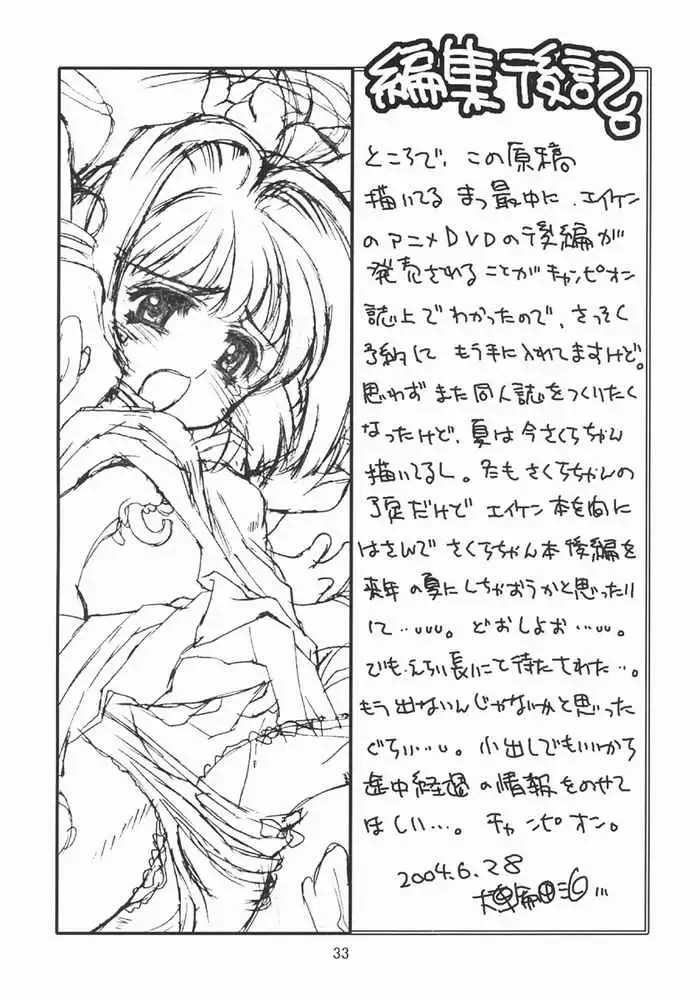 編集後記
ところで、この原稿
描いてる まっ最中に、エイケン
のアニメDVDの後編が
発売されることがチャンピオン
誌上でわかったので、さっそく
予約して もう手に入れてますけど。
思わず また 同人誌をつくりたく
なったけど、夏は今さくらちゃん
描いてるし。冬もさくらちゃんの
予定だけど エイケン本を間に
はさんで さくらちゃん本後編を
来年の夏にしちゃおうかと思ったり
して…。どおしよお…。
でも
長いこと待たされた…。
もう出ないんじゃないかと思った
ぐらい…。小出しでもいいから
途中経過の情報をのせて
ほしい…。チャンピオン。
2004.6.28
33